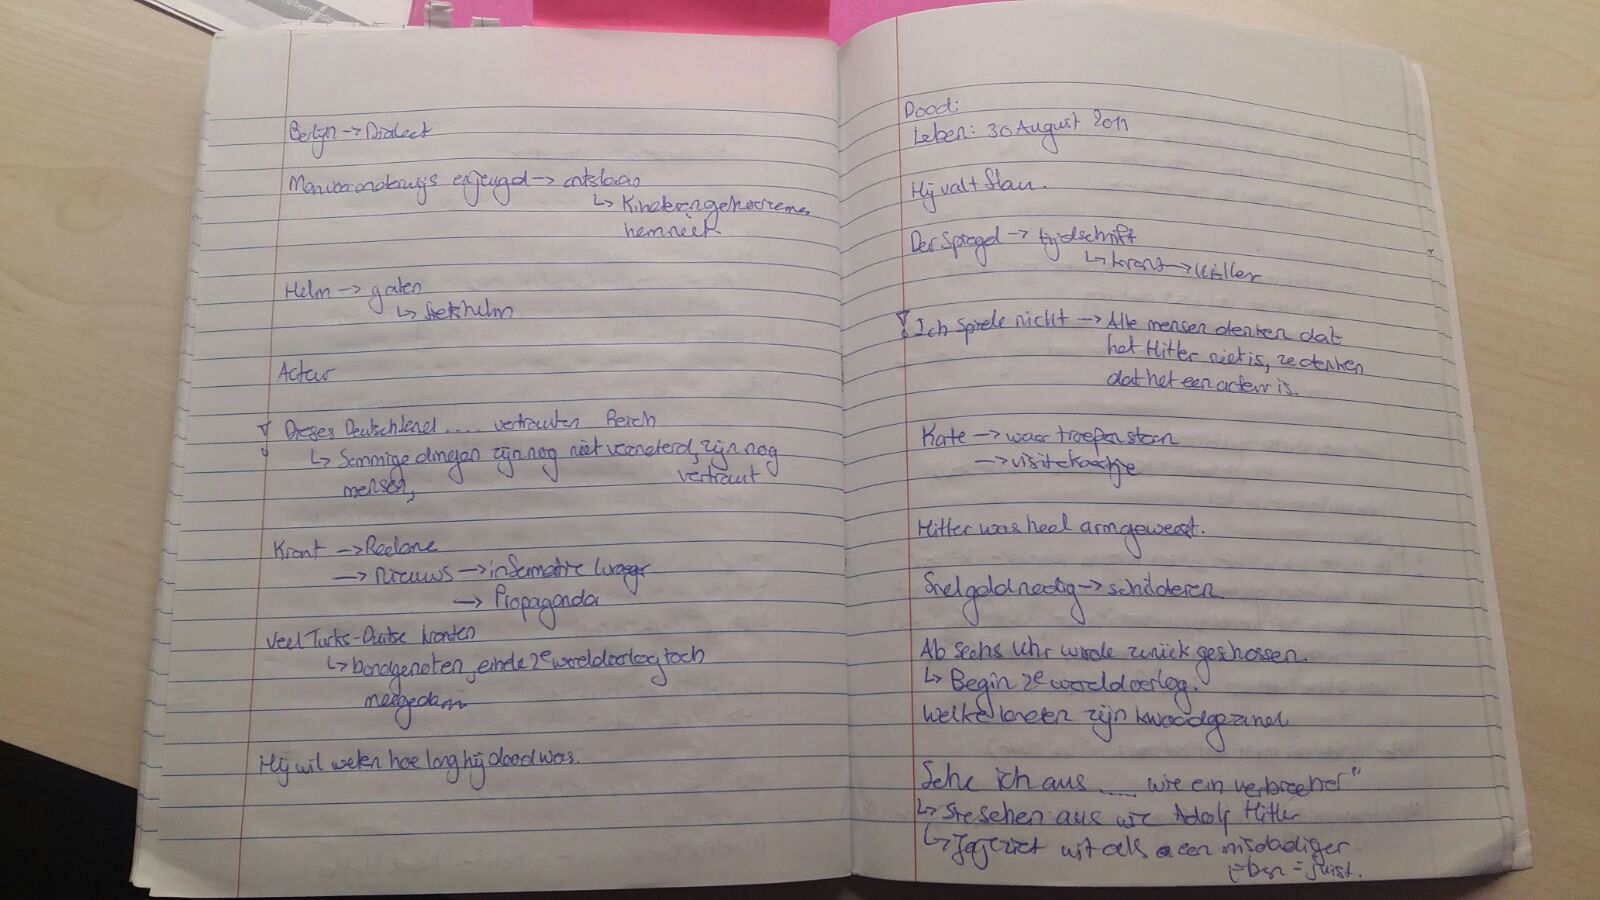 Berlijn → Dialect
→ ontslaan
↳ Kinderen
hem niet.
Helm → gaten
↳ Stekhelm
Acteur
Dieses Deutschland ..... vertrauten Reich
↳ Sommige dingen zijn nog niet veranderd, zijn nog
mensen, vertraut
Krant → Reclame
→ Nieuws → informatie
→ Propaganda
Veel Turks-Duitse kranten
↳ bondgenoten, einde 2e wereldoorlog toch
meegedaan
Hij wil weten hoe lang hij dood was.
Dood:
Leben: 30 August 2011
Hij valt flau.
Der Spiegel → tijdschrift
↳ krant →
! Ich Spiele nicht → Alle mensen denken dat
het Hitler niet is, ze denken
dat het een acteur is.
Kate → waar troepen staan
→ visitekaartje
Hitler was heel arm geweest.
Snel geld nodig → schilderen
Ab sechs Uhr wurde zurück geshossen.
↳ Begin 2e wereldoorlog.
Welke landen zijn kwaadgezind
Sehe ich aus ..... wie ein verbrecher"
↳ Sie sehen aus wie Adolf Hitler
↳ Jij ziet uit als een misdadiger
= juist.